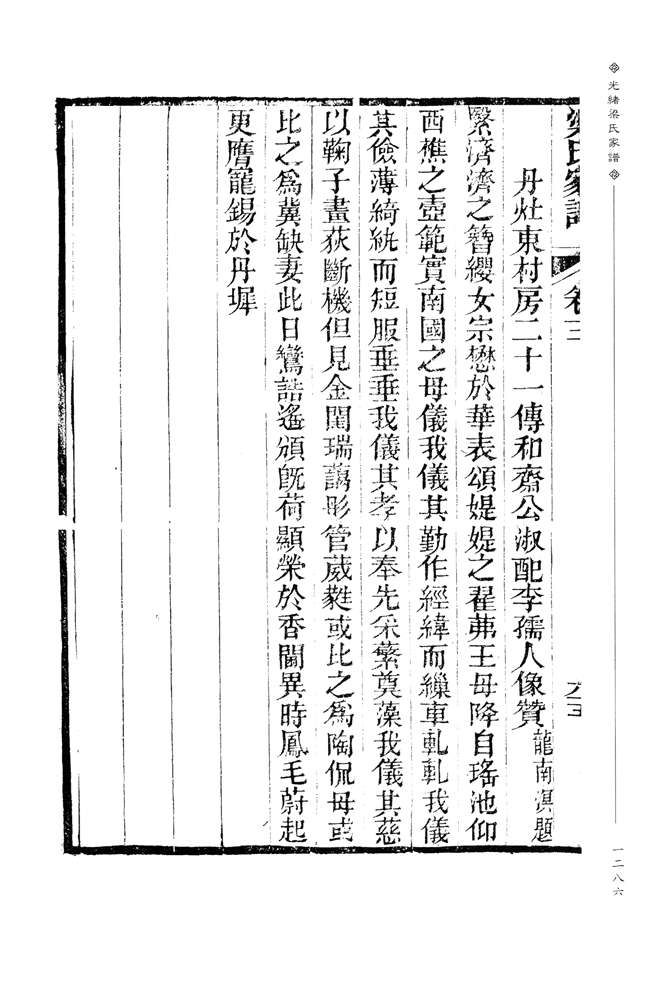 光緒梁氏家譜
一二八六
梁氏家譜 卷三 六三
丹灶東村房二十一傳和齋公淑配李孺人像贊 龍南溟題
繄濟濟之簪纓女宗懋於華表頌媞媞之翟茀王母降自瑤池仰
西樵之壼範實南國之母儀我儀其勤作經緯而繅車軋軋我儀
其儉薄綺紈而短服垂垂我儀其孝以奉先采蘩奠藻我儀其慈
以鞠子畫荻斷機但見金閨瑞藹彤管葳蕤或比之爲陶侃母或
比之爲冀缺妻此日鸞誥遙頒旣荷顯榮於香閫異時鳳毛蔚起
更膺寵錫於丹墀